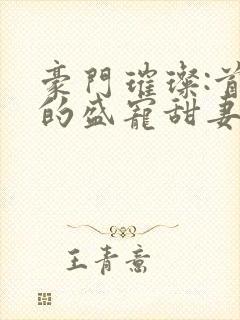 豪門璀璨:首
的盛寵甜妻
王青意